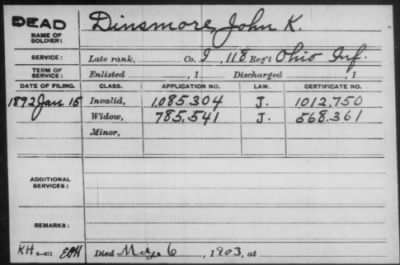 DEAD
NAME OF SOLDIER: Dinsmore, John K.
SERVICE: Late rank, Co. I, 118 Reg't Ohio Inf.
TERM OF SERVICE: Enlisted , 1 Discharged , 1
DATE OF FILING. CLASS. APPLICATION NO. LAW. CERTIFICATE NO.
1892 Jan 15 Invalid, 1,085,304 J. 1012,750
Widow, 785,541 J. 568.361
Minor,
ADDITIONAL SERVICES:
REMARKS:
KH Died 6, 1903, at